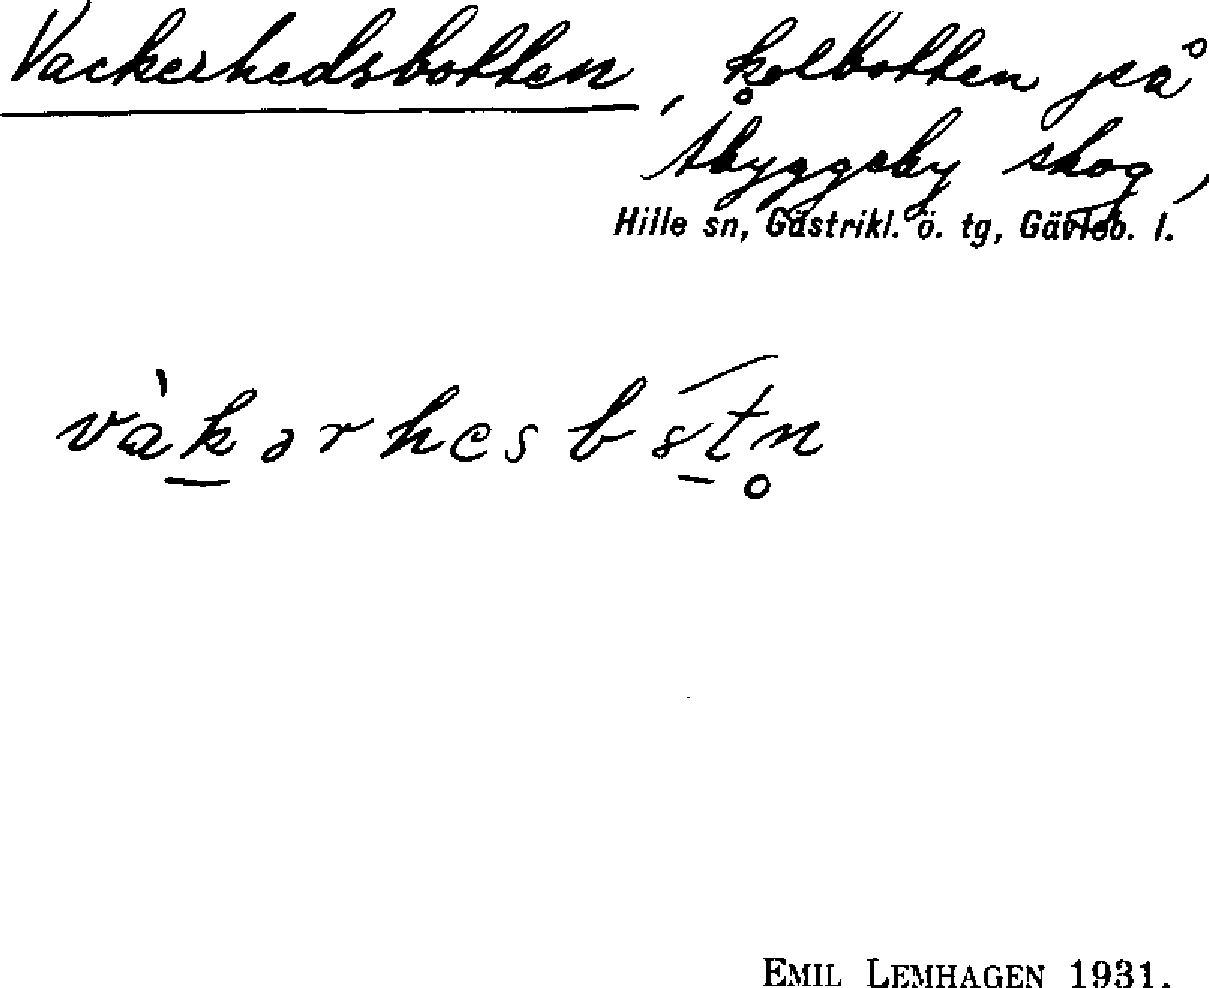 Vackerhedsbotten, kolbotten på
Åbyggeby skog,
Hille sn, Gästrikl. ö. tg, Gävleb. l.
vàkərhesb8tn̥
EMIL LEMHAGEN 1931.